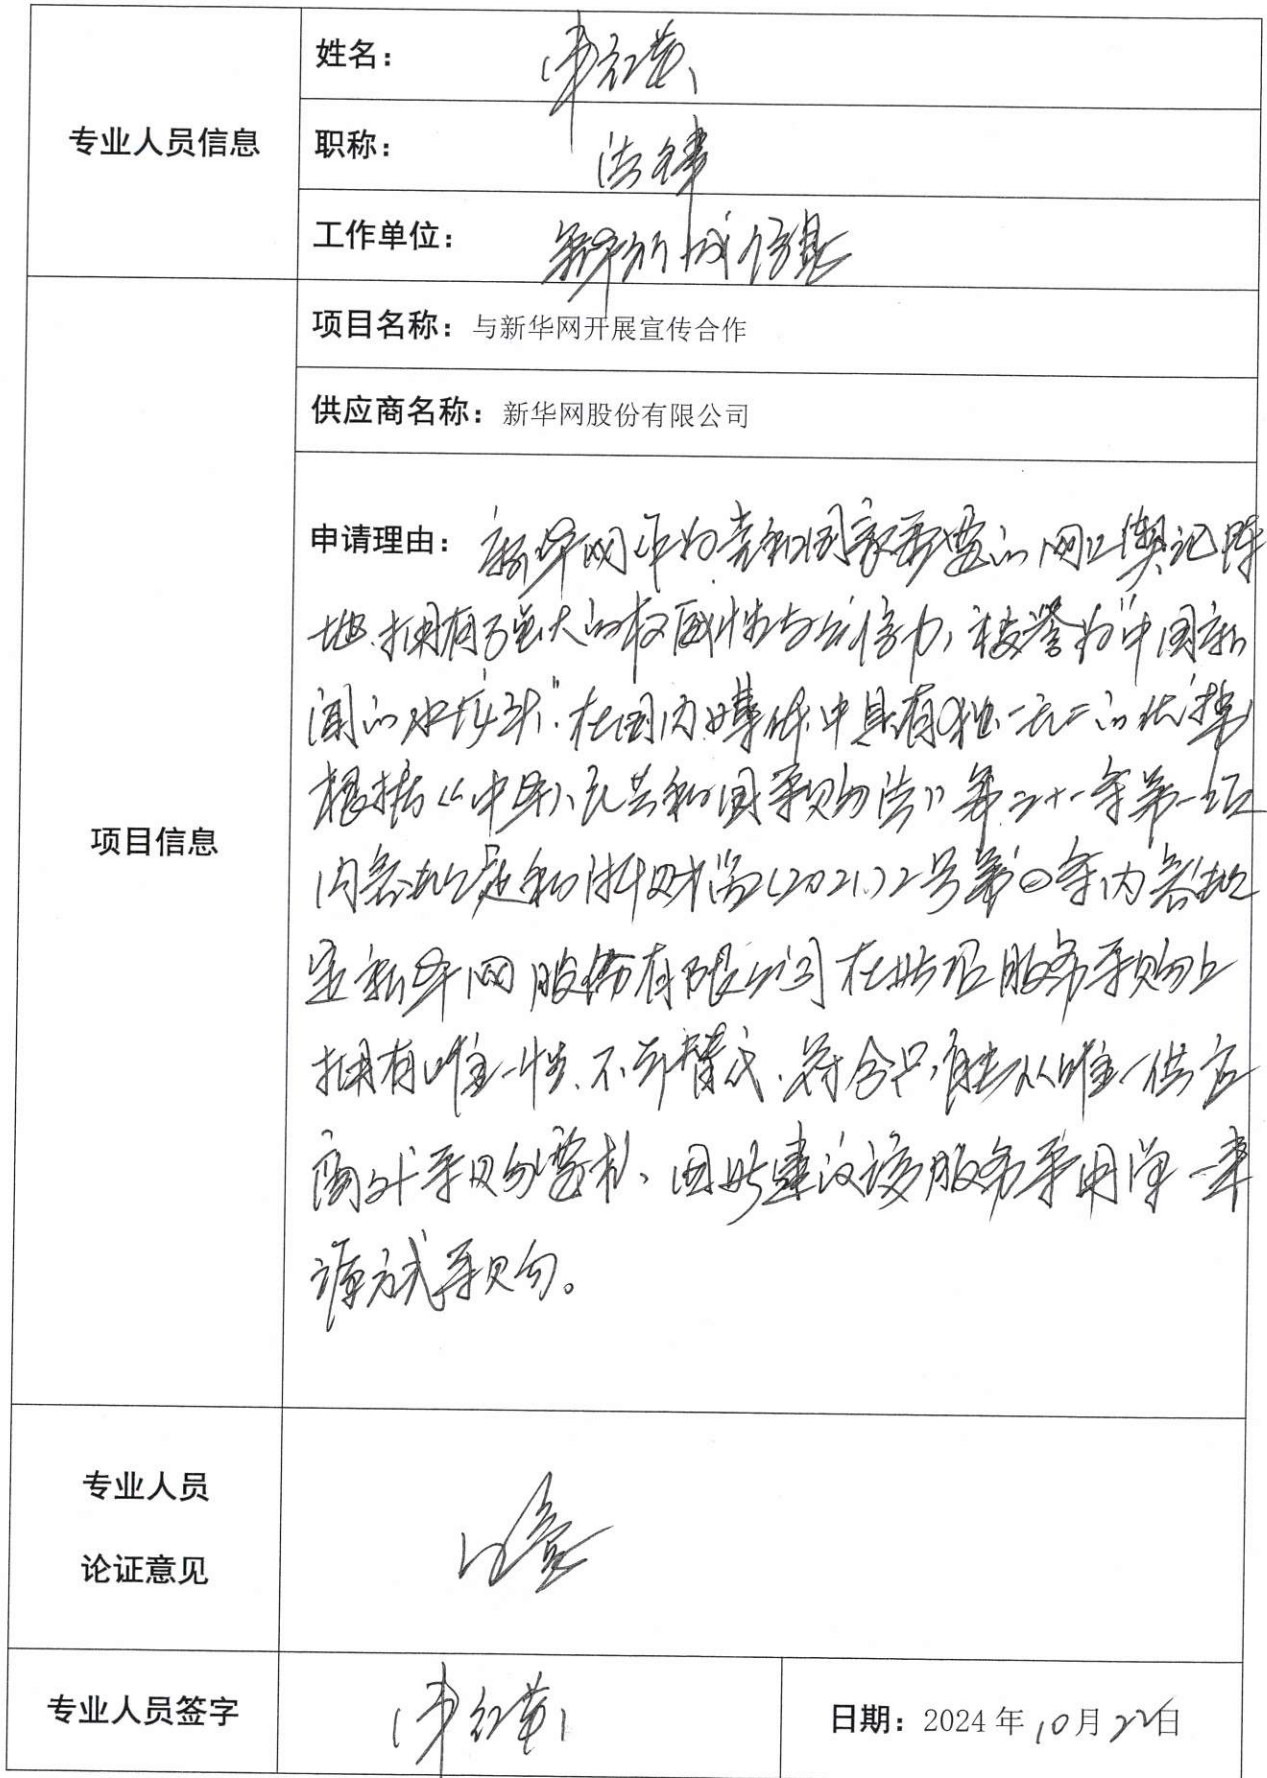 专业人员信息
姓名：
职称：
工作单位：
项目信息
项目名称：与新华网开展宣传合作
供应商名称：新华网股份有限公司
申请理由：新华网作为党和国家重要的网上舆论阵
地.拥有了强大的权威性与公信力，被誉为"中国新
闻的".在国内媒体中具有独一无二的优势
根据《中华人民共和国采购法》第三十一条第一项
内容规定和浙财监(2021)2号第四条内容规
定新华网股份有限公司在此项服务采购上
拥有唯一性.不可替代.符合只能从唯一供应
商处采购需求、因此建议该服务采用单一来
源方式采购。
专业人员
论证意见
同意
专业人员签字
日期：2024年10月22日